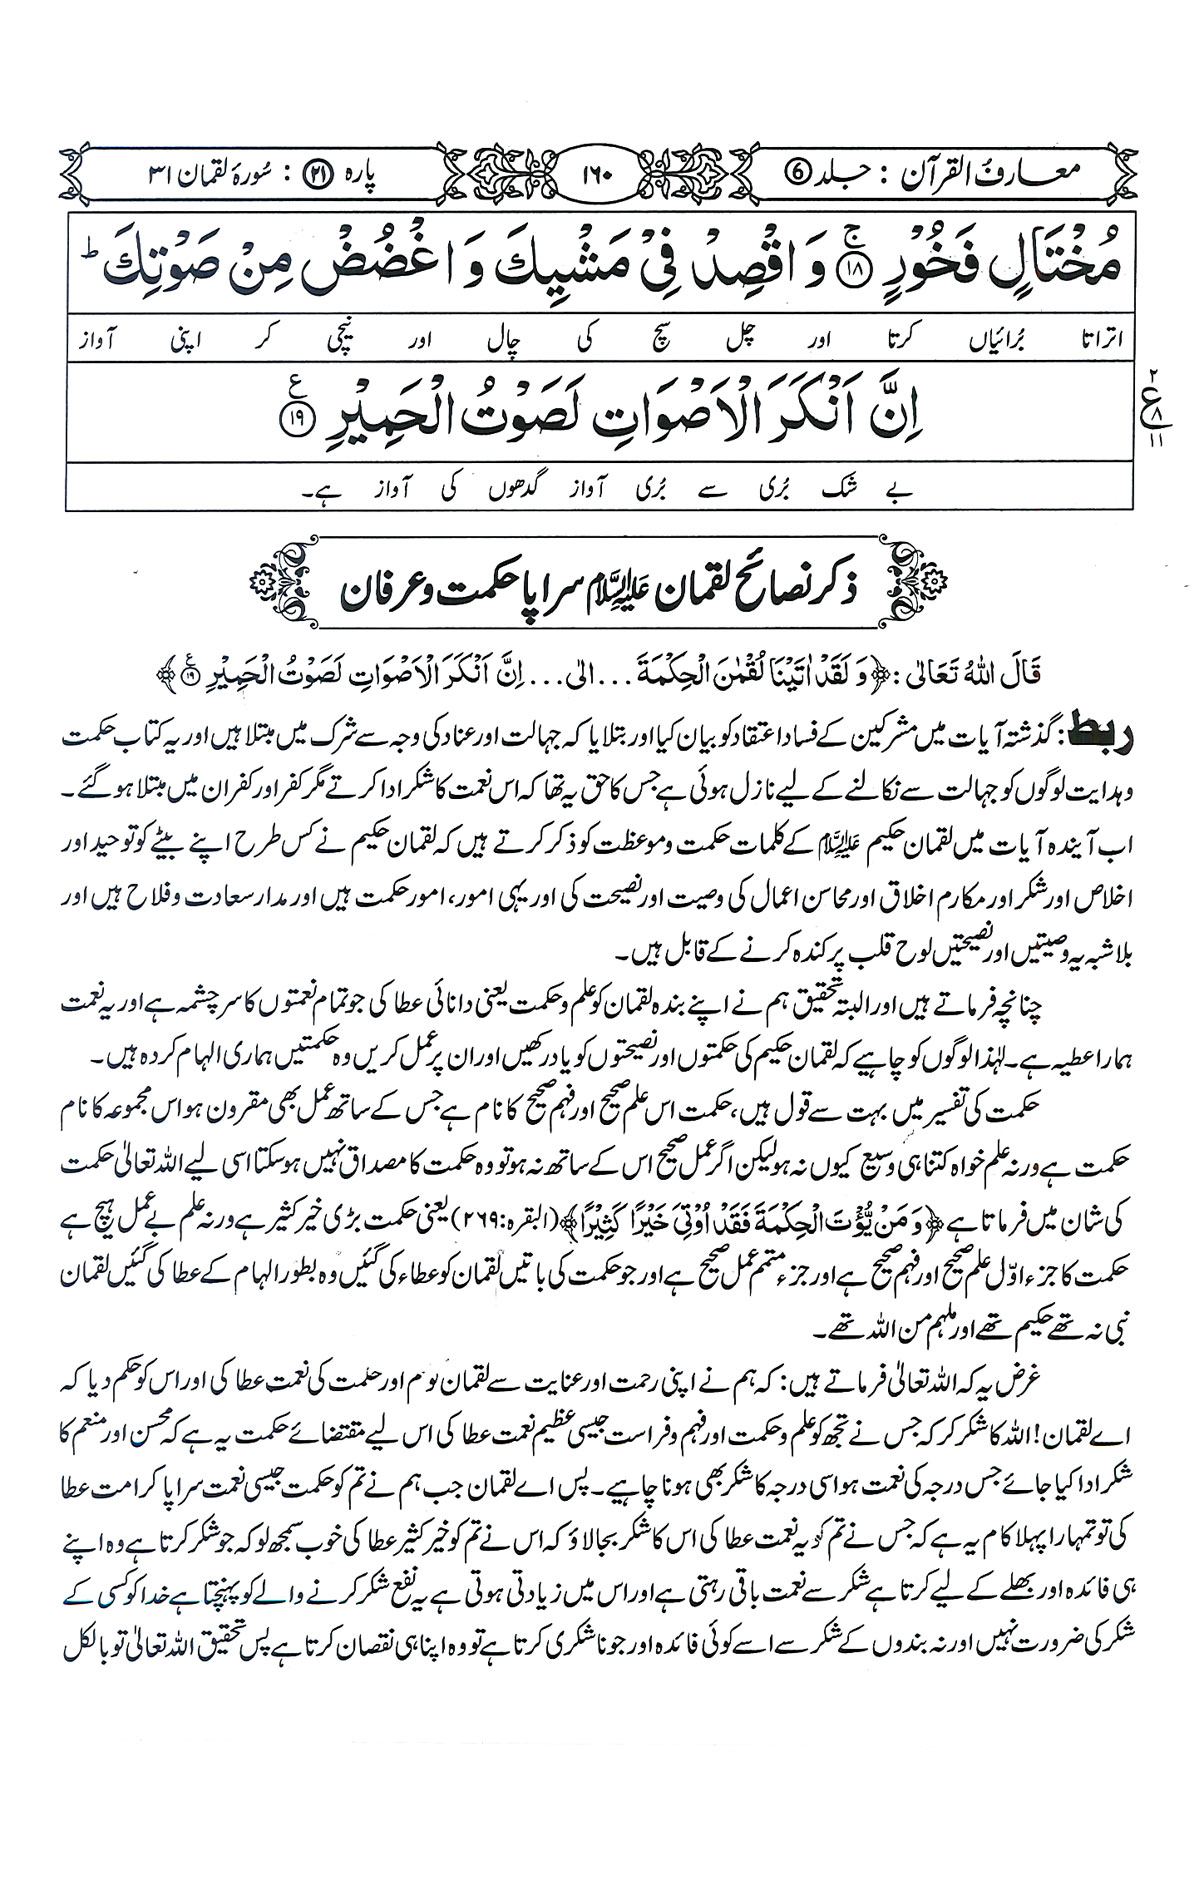 معارف القرآن : جلد 6
۱۶۰
پارہ ۲۱ : سُورۂ لقمان ۳۱
مُخْتَالٍ فَخُوْرٍ ۚ﴿۱۸﴾ وَ اقْصِدْ فِیْ مَشْیِكَ وَ اغْضُضْ مِنْ صَوْتِكَ ؕ
اتراتا بُرائیاں کرتا اور چل سچ کی چال اور نیچی کر اپنی آواز
اِنَّ اَنْکَرَ الْاَصْوَاتِ لَصَوْتُ الْحَمِیْرِ ﴿۱۹﴾ ع
۲
ع
۸
۱۱
بے شک بُری سے بُری آواز گدھوں کی آواز ہے۔
ذکر نصائح لقمان علیہ السلام سراپا حکمت و عرفان
قَالَ اللهُ تَعَالٰی : ﴿وَ لَقَدْ اٰتَیْنَا لُقْمٰنَ الْحِکْمَةَ ... الٰی ... اِنَّ اَنْکَرَ الْاَصْوَاتِ لَصَوْتُ الْحَمِیْرِ ۱۹ ع﴾
ربط : گذشتہ آیات میں مشرکین کے فساد اعتقاد کو بیان کیا اور بتلایا کہ جہالت اور عناد کی وجہ سے شرک میں مبتلا ہیں اور یہ کتاب حکمت
و ہدایت لوگوں کو جہالت سے نکالنے کے لیے نازل ہوئی ہے جس کا حق یہ تھا کہ اس نعمت کا شکر ادا کرتے مگر کفر اور کفران میں مبتلا ہو گئے ۔
اب آیندہ آیات میں لقمان حکیم علیہ السلام کے کلمات حکمت و موعظت کو ذکر کرتے ہیں کہ لقمان حکیم نے کس طرح اپنے بیٹے کو توحید اور
اخلاص اور شکر اور مکارم اخلاق اور محاسن اعمال کی وصیت اور نصیحت کی اور یہی امور، امور حکمت ہیں اور مدار سعادت و فلاح ہیں اور
بلا شبہ یہ وصیتیں اور نصیحتیں لوح قلب پر کندہ کرنے کے قابل ہیں ۔
چنانچہ فرماتے ہیں اور البتہ تحقیق ہم نے اپنے بندہ لقمان کو علم و حکمت یعنی دانائی عطا کی جو تمام نعمتوں کا سر چشمہ ہے اور یہ نعمت
ہمارا عطیہ ہے۔ لہٰذا لوگوں کو چاہیے کہ لقمان حکیم کی حکمتوں اور نصیحتوں کو یاد رکھیں اور ان پر عمل کریں وہ حکمتیں ہماری الہام کردہ ہیں ۔
حکمت کی تفسیر میں بہت سے قول ہیں، حکمت اس علم صحیح اور فہم صحیح کا نام ہے جس کے ساتھ عمل بھی مقرون ہو اس مجموعہ کا نام
حکمت ہے ورنہ علم خواہ کتنا ہی وسیع کیوں نہ ہو لیکن اگر عمل صحیح اس کے ساتھ نہ ہو تو وہ حکمت کا مصداق نہیں ہو سکتا اسی لیے اللہ تعالیٰ حکمت
کی شان میں فرماتا ہے ﴿وَ مَنْ یُّؤْتَ الْحِکْمَةَ فَقَدْ اُوْتِیَ خَیْرًا کَثِیْرًا﴾ (البقرہ:۲۶۹) یعنی حکمت بڑی خیر کثیر ہے ورنہ علم بے عمل ہیچ ہے
حکمت کا جزء اوّل علم صحیح اور فہم صحیح ہے اور جزء متمم عمل صحیح ہے اور جو حکمت کی باتیں لقمان کو عطاء کی گئیں وہ بطور الہام کے عطا کی گئیں لقمان
نبی نہ تھے حکیم تھے اور ملہم من اللہ تھے ۔
غرض یہ کہ اللہ تعالیٰ فرماتے ہیں : کہ ہم نے اپنی رحمت اور عنایت سے لقمان کو علم اور حکمت کی نعمت عطا کی اور اس کو حکم دیا کہ
اے لقمان! اللہ کا شکر کر کہ جس نے تجھ کو علم و حکمت اور فہم و فراست جیسی عظیم نعمت عطا کی اس لیے مقتضائے حکمت یہ ہے کہ محسن اور منعم کا
شکر ادا کیا جائے جس درجہ کی نعمت ہو اسی درجہ کا شکر بھی ہونا چاہیے ۔ پس اے لقمان جب ہم نے تم کو حکمت جیسی نعمت سراپا کرامت عطا
کی تو تمہارا پہلا کام یہ ہے کہ جس نے تم کو یہ نعمت عطا کی اس کا شکر بجا لاؤ کہ اس نے تم کو خیر کثیر عطا کی خوب سمجھ لو کہ جو شکر کرتا ہے وہ اپنے
ہی فائدہ اور بھلے کے لیے کرتا ہے شکر سے نعمت باقی رہتی ہے اور اس میں زیادتی ہوتی ہے یہ نفع شکر کرنے والے کو پہنچتا ہے خدا کو کسی کے
شکر کی ضرورت نہیں اور نہ بندوں کے شکر سے اسے کوئی فائدہ اور جو ناشکری کرتا ہے تو وہ اپنا ہی نقصان کرتا ہے پس تحقیق اللہ تعالیٰ تو بالکل